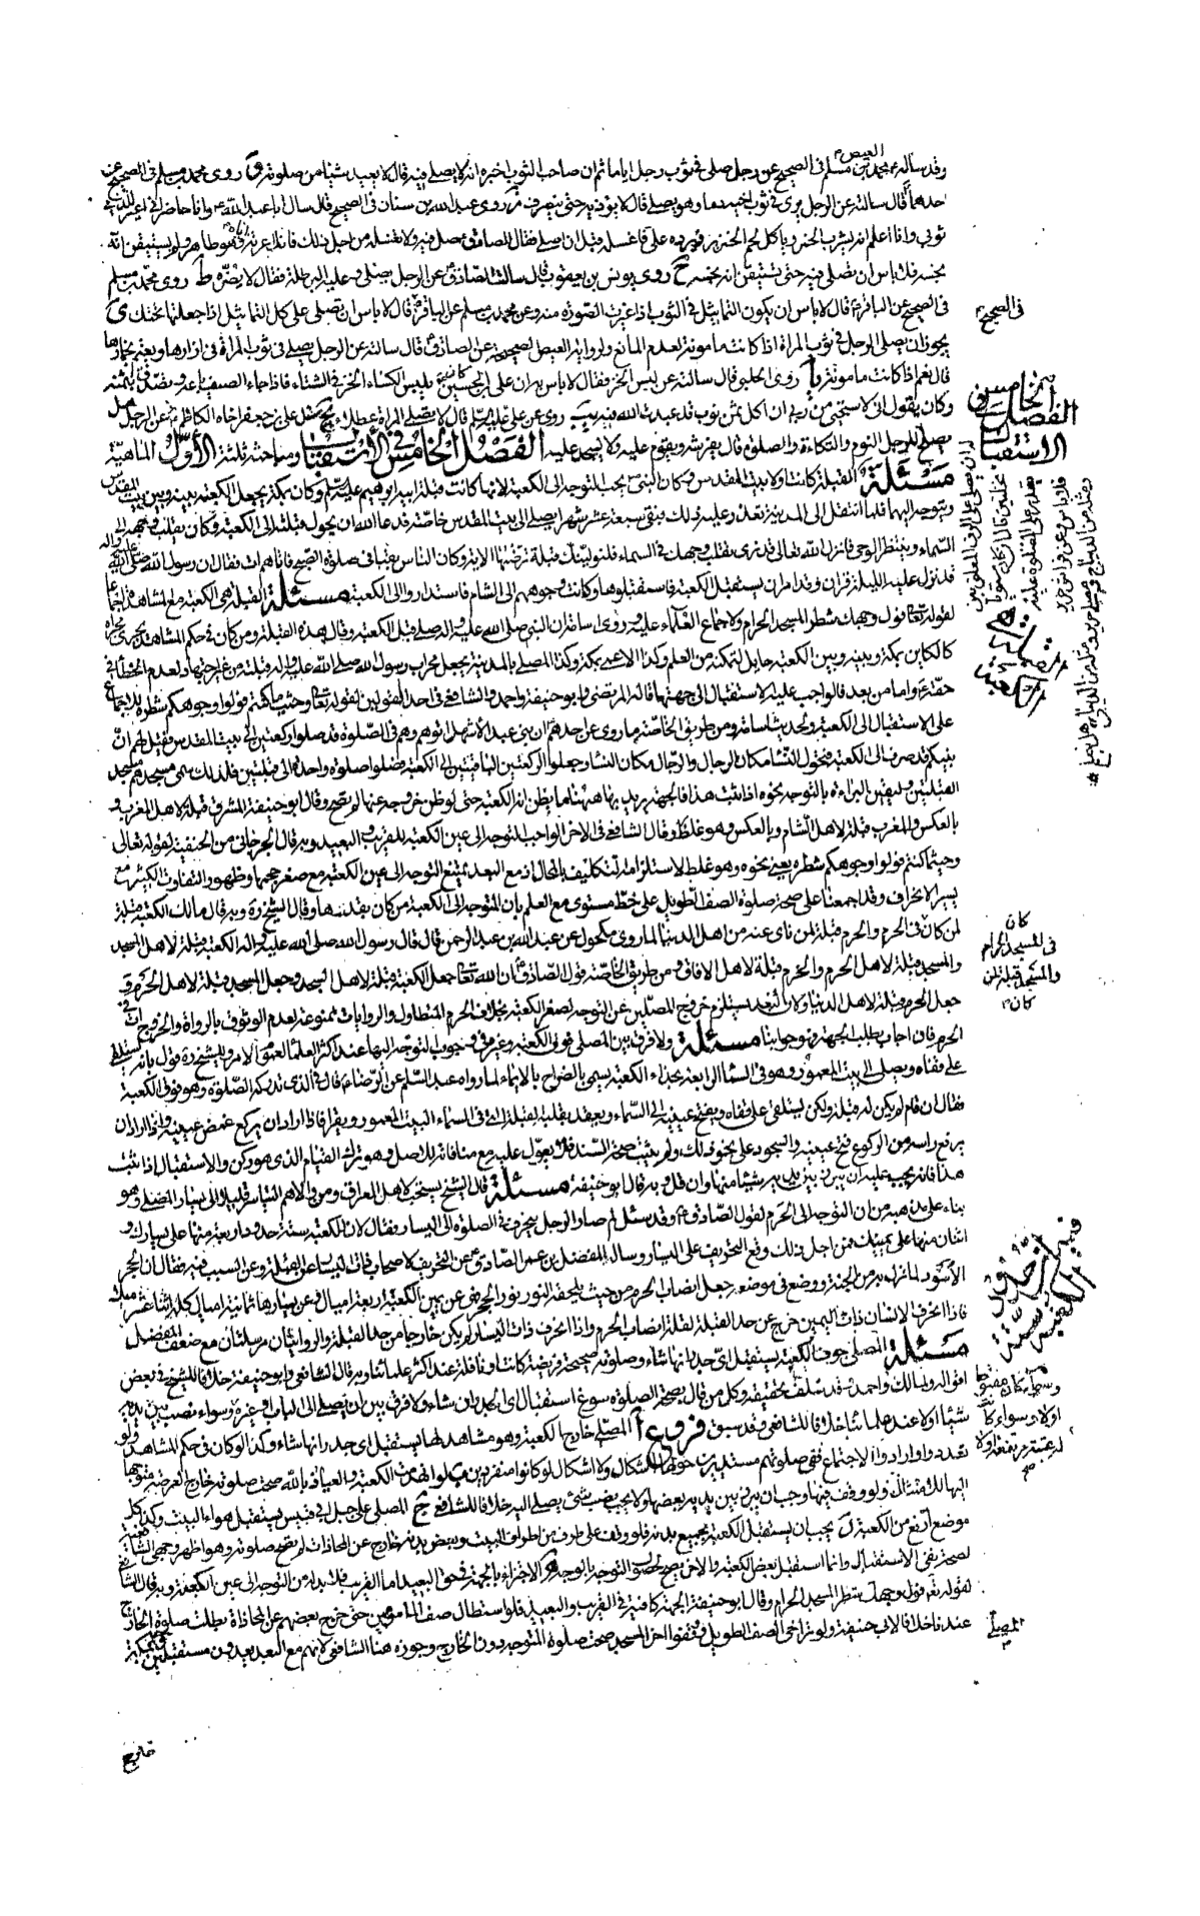 العيص
وقد سأله محمد بن مسلم فى الصحيح عن رجل صلى فى ثوب رجل اياما ثم ان صاحب الثوب اخبره انه لا يصلى فيه قال لا يعيد شيئا من صلوته روى محمد بن مسلم فى الصحيح عن
احدهما قال سالته عن الرجل يرى فى ثوب اخيه دما وهو يصلى قال لا يؤذنه حتى ينصرف روى عبد الله بن سنان فى الصحيح قال سال ابا عبد الله وانا حاضر انى اعير الذمى
ثوبى وانا اعلم انه يشرب الخمر وياكل لحم الخنزير فيرده على فاغسله قبل ان اصلى فقال الصادق صل فيه ولا تغسله من اجل ذلك فانك اعرته اياه وهو طاهر ولم يستيقن انه
نجسه فلا باس ان تصلى فيه حتى تستيقن انه نجسه ح روى يونس بن يعقوب قال سالت الصادق عن الرجل يصلى وعليه البرطلة فقال لا يضره ط روى محمد بن مسلم
فى الصحيح عن الباقر قال لا باس ان يكون التماثيل فى الثوب اذا غيرت الصورة منه وعن محمد بن مسلم عن الباقر قال لا باس ان تصلى على كل التماثيل اذا جعلتها تحتك ى
يجوز ان يصلى الرجل فى ثوب المراة اذا كانت مامونة لعدم المانع ولرواية العيص الصحيحة عن الصادق قال سالته عن الرجل يصلى فى ثوب المراة فى ازارها ويعتم بخمارها
قال نعم اذا كانت مامونة يا روى الحلبى قال سالته عن لبس الخز فقال لا باس به ان على بن الحسين كان يلبس الكساء الخز فى الشتاء فاذا جاء الصيف باعه وتصدق بثمنه
وكان يقول انى لاستحيى من ربى ان اكل ثمن ثوب قد عبدت الله فيه يب روى عن على قال لا تصلى المراة عطلا يج سئل على بن جعفر اخاه الكاظم عن الرجل هل
يصلح للرجل النوم والتكاءة والصلوة قال يفترشه ويقوم عليه ولا يسجد عليه الفصل الخامس فى الاستقبال ومباحثه ثلثة الأول الماهية
مسئلة القبلة كانت اولا بيت المقدس وكان النبى يحب التوجه الى الكعبة لانها كانت قبلة ابيه ابراهيم وكان بمكة يجعل الكعبة بينه وبين بيت المقدس
ويتوجه اليها فلما انتقل الى المدينة تعذر عليه ذلك فبقى سبعة عشر شهرا يصلى الى بيت المقدس خاصة فدعا الله ان يحول قبلته الى الكعبة وكان يقلب وجهه الى
السماء وينتظر الوحى فانزل الله تعالى قد نرى تقلب وجهك فى السماء فلنولينك قبلة ترضيها الاية وكان الناس بقبا فى صلوة الصبح فاتاهم ات فقال ان رسول الله صلى الله عليه واله
قد نزل عليه الليلة قران وقد امر ان يستقبل الكعبة فاستقبلوها وكانت وجوههم الى الشام فاستداروا الى الكعبة مسئلة القبلة هى الكعبة مع المشاهدة اجماعا
لقوله تعالى فول وجهك شطر المسجد الحرام ولاجماع العلماء عليه وروى اسامة ان النبى صلى الله عليه واله صلى قبل الكعبة وقال هذه القبلة ومن كان فى حكم المشاهد يجرى مجراه
كالكاين بمكة وبينه وبين الكعبة حايل لتمكنه من العلم وكذا الاعمى بمكة وكذا المصلى بالمدينة يجعل محراب رسول الله صلى الله عليه واله قبلته من غير اجتهاد لعدم الخطأ فى
حقه واما من بعد فالواجب عليه الاستقبال الى جهتها قاله المرتضى وابو حنيفة واحمد والشافعى فى احد القولين لقوله تعالى وحيث ما كنتم فولوا وجوهكم شطره وللاجماع
على الاستقبال الى الكعبة ولحديث اسامة ومن طريق الخاصة ما روى عن احدهما ان بنى عبد الاشهل اتوهم وهم فى الصلوة قد صلوا ركعتين الى بيت المقدس فقيل لهم ان
نبيكم قد صرف الى الكعبة فتحول النساء مكان الرجال والرجال مكان النساء وجعلوا الركعتين الباقيتين الى الكعبة فصلوا صلوة واحدة الى قبلتين فلذلك سمى مسجدهم مسجد
القبلتين وليقين البراءة بالتوجه نحوه اذا ثبت هذا فالجهة يريد بها ههنا ما يظن انه الكعبة حتى لو ظن خروجه عنها لم يصح وقال ابو حنيفة المشرق قبلة لاهل المغرب و
بالعكس والمغرب قبلة لاهل الشام وبالعكس وهو غلط وقال الشافعى فى الاخر الواجب التوجه الى عين الكعبة للقريب والبعيد وبه قال الجرجانى من الحنفية لقوله تعالى
وحيثما كنتم فولوا وجوهكم شطره يعنى نحوه وهو غلط لاستلزامه التكليف بالمحال اذ مع البعد يمتنع التوجه الى عين الكعبة مع صغر حجمها وظهور التفاوت الكثير مع
يسير الانحراف وقد اجمعنا على صحة صلوة الصف الطويل على خط مستوى مع العلم بان المتوجه الى الكعبة من كان بقدرها وقال الشيخ ره وبه قال مالك الكعبة قبلة
لمن كان فى الحرم والحرم قبلة لمن ناى عنه من اهل الدنيا لما روى مكحول عن عبد الله بن عبد الرحمن قال قال رسول الله صلى الله عليه واله الكعبة قبلة لاهل المسجد
والمسجد قبلة لاهل الحرم والحرم قبلة لاهل الافاق ومن طريق الخاصة قول الصادق ان الله تعالى جعل الكعبة قبلة لاهل المسجد وجعل المسجد قبلة لاهل الحرم و
جعل الحرم قبلة لاهل الدنيا ولان البعد يستلزم خروج المصلين عن التوجه لصغر الكعبة بخلاف الحرم المتطاول والروايات ممنوعة لعدم الوثوق بالرواة والخروج ات فى
الحرم فان اجاب بطلب الجهة فهو جوابنا مسئلة ولا فرق بين المصلى فوق الكعبة وغيره فى وجوب التوجه اليها عند اكثر العلماء لعموم الامر وللشيخ ره قول بانه يستلقى
على قفاه ويصلى الى البيت المعمور وهو فى السماء الرابعة بحذاء الكعبة يسمى بالضراح بالايماء لما رواه عبد السلم عن الرضا قال فى الذى تدركه الصلوة وهو فوق الكعبة
فقال ان قام لم يكن له قبلة ولكن يستلقى على قفاه ويفتح عينيه الى السماء ويعقد بقلبه القبلة التى فى السماء البيت المعمور ويقرا فاذا اراد ان يركع غمض عينيه واذا اراد ان
يرفع راسه من الركوع فتح عينيه والسجود على نحو ذلك ولم يثبت صحة السند فلا يعول عليه مع منافاته للاصل وهو ترك القيام الذى هو ركن والاستقبال اذا ثبت
هذا فانه يجب عليه ان يبرز بين يديه شيئا منها وان قل وبه قال ابو حنيفة مسئلة قال الشيخ يستحب لاهل العراق ومن والاهم التياسر قليلا الى يسار المصلى وهو
بناء على مذهبه من ان التوجه الى الحرم لقول الصادق وقد سئل لم صار الرجل ينحرف فى الصلوة الى اليسار فقال لان للكعبة ستة حدود اربعة منها على يسارك و
اثنان منها على يمينك فمن اجل ذلك وقع التحريف على اليسار وساله المفضل بن عمر الصادق عن التحريف لاصحابنا ذات اليسار عن القبلة وعن السبب فيه فقال ان الحجر
الاسود لما نزل به من الجنة ووضع فى موضعه جعل انصاب الحرم من حيث يلحقه النور نور الحجر فهى عن يمين الكعبة اربعة اميال وعن يسارها ثمانية اميال كله اثنا عشر ميلا
فاذا انحرف الانسان ذات اليمين خرج عن حد القبلة لقلة انصاب الحرم واذا انحرف ذات اليسار لم يكن خارجا من حد القبلة والروايتان مرسلتان مع ضعف المفضل
مسئلة المصلى جوف الكعبة يستقبل اى جدرانها شاء وصلوته صحيحة فريضة كانت او نافلة عند اكثر علمائنا وبه قال الشافعى وابو حنيفة خلافا للشيخ فى بعض
اقواله ولمالك واحمد وقد سلف تحقيقه وكل من قال بصحة الصلوة سوغ استقبال اى جدران شاء ولا فرق بين ان يصلى الى الباب او غيره وسواء نصب بين يديه
شيئا اولا عند علمائنا خلافا للشافعى وقد سبق فروع ا المصلى خارج الكعبة وهو مشاهد لها يستقبل اى جدرانها شاء وكذا لو كان فى حكم المشاهد ولو
تعددوا وارادوا الاجتماع ففى صلوتهم مستديرين حولها اشكال ولا اشكال لو كانوا منفردين ب لو انهدمت الكعبة والعياذ بالله صحت صلوته خارج العرصة متوجها
اليها للامتثال ولو وقف فيها وجب ان يبرز بين يديه بعضها ولا يجب نصب شئ يصلى اليه خلافا للشافعى ج المصلى على جبل ابى قبيس يستقبل هواء البيت وكذا كل
موضع ارفع من الكعبة د يجب ان يستقبل الكعبة بجميع بدنه فلو وقف على طرف من اطراف البيت وبعض بدنه خارج عن المحاذات لم تصح صلوته وهو اظهر وجهى الشافعية
لصحة نفى الاستقبال وانما استقبل بعض الكعبة والاخر يصح لحصول التوجه بالوجه ه الاجتزاء بالجهة فى حق البعيد اما القريب فلا بد له من التوجه الى عين الكعبة وبه قال الشافعى
لقوله تعالى فول وجهك شطر المسجد الحرام وقال ابو حنيفة الجهة كافية فى القريب والبعيد فلو استطال صف المامومين حتى خرج بعضهم عن المحاذاة بطلت صلوة الخارج
عندنا خلافا لابى حنيفة ولو تراخى الصف الطويل ووقفوا اخر المسجد صحت صلوة المتوجه دون الخارج وجوزه هنا الشافعى لانهم مع البعد يعدون مستقبلين
فى الصحيح
الفصل الخامس فى
الاستقبال
القبلة هى
الكعبة
كان
فى المسجد الحرام
والمسجد قبلة لمن
كان
المصلى